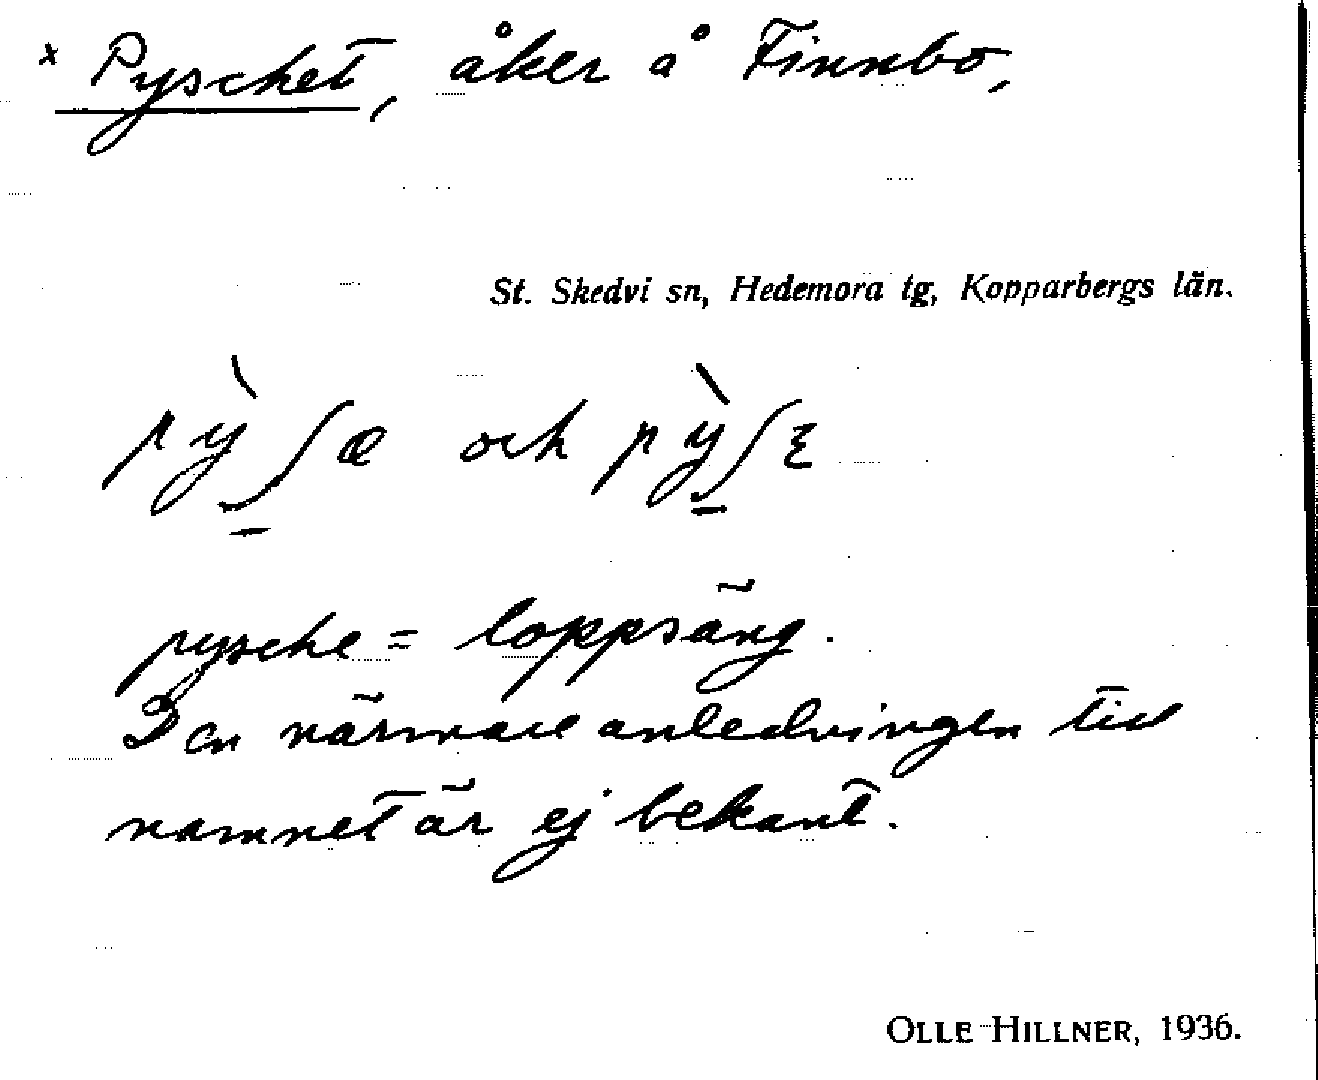 x Pyschet, åker å Finnbo,
St. Skedvi sn, Hedemora tg, Kopparbergs län.
pỳʃæ och pỳʃε
pysche = loppsäng.
Den närmare anledningen till
namnet är ej bekant.
OLLE HILLNER, 1936.